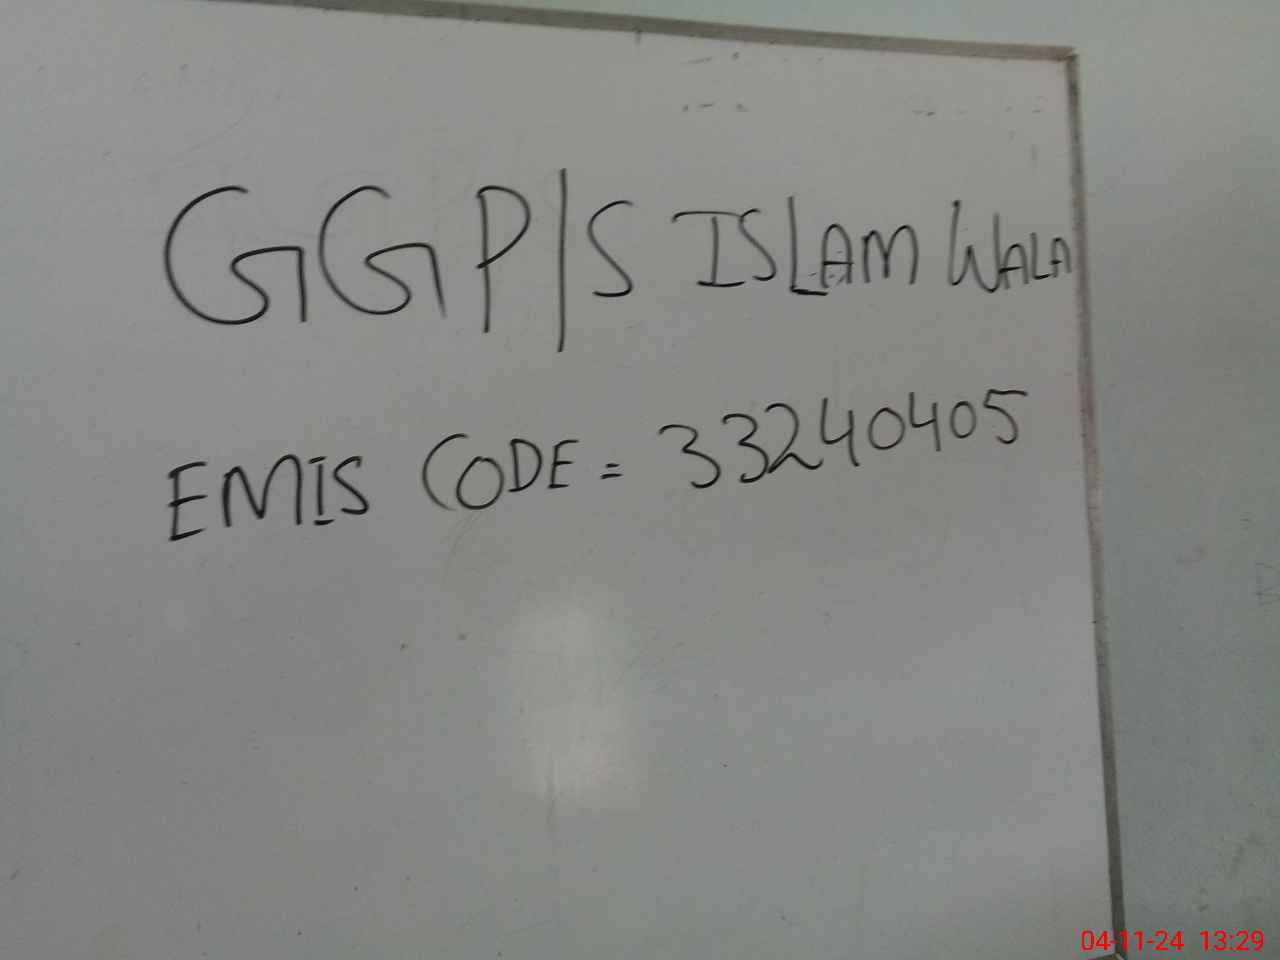 GGP/S ISLAM WALA
EMIS CODE = 33240405
04-11-24 13:29